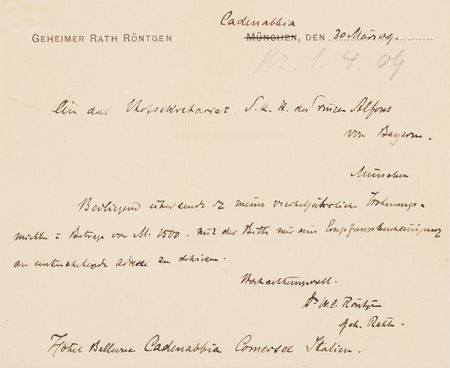 Cadenabbia
GEHEIMER RATH RÖNTGEN MÜNCHEN, DEN 30 März 09.
pr. 1. 4. 09
An das Hofsekretariat S. K. H. des Prinzen Alfons
von Bayern.
München
Beiliegend übersende ich meine vierteljährliche Wohnungs-
miethe i. Betrage von M. 1500. mit der Bitte mir eine Empfangsbescheinigung
an untenstehende Adresse zu schicken.
Hochachtungsvoll.
Dr W. C. Röntgen
Geh. Rath.
Hôtel Bellevue Cadenabbia Comersee Italien.